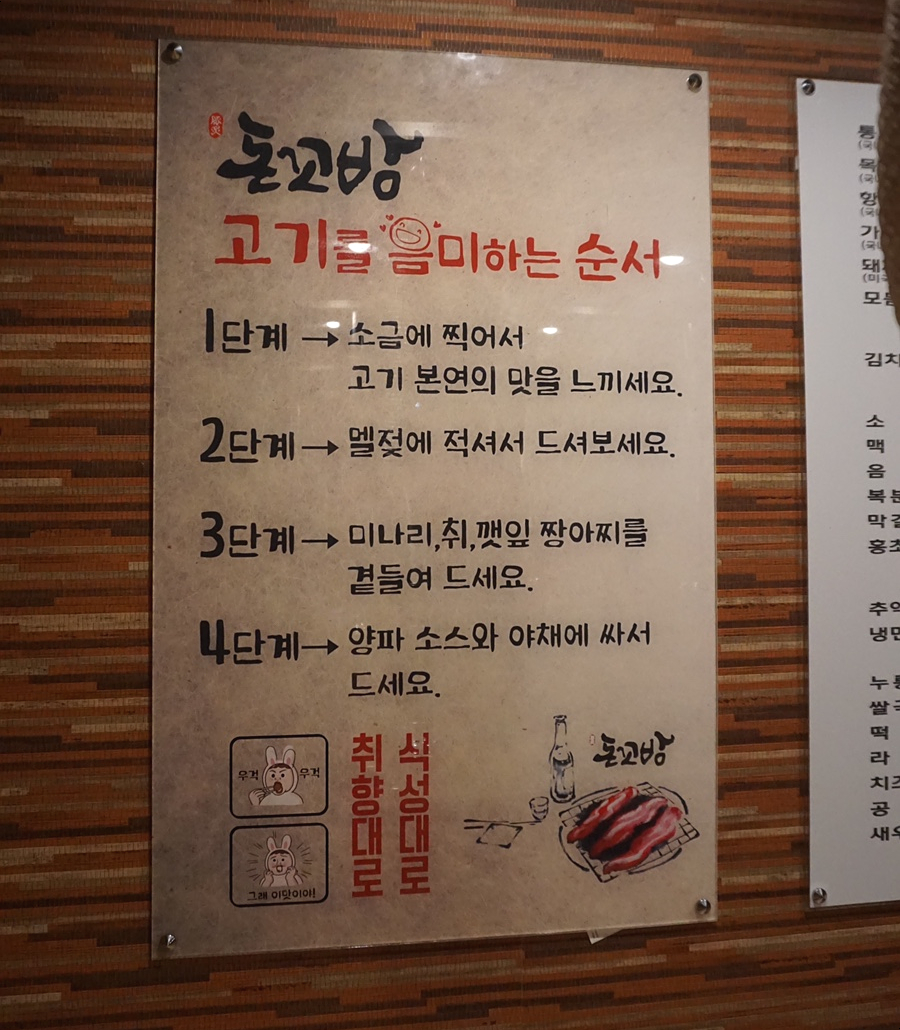 돈꼬방
고기를 음미하는 순서
1단계 → 소금에 찍어서
고기 본연의 맛을 느끼세요.
2단계 → 멜젖에 적셔서 드셔보세요.
3단계 → 미나리,취,깻잎 짱아찌를
곁들여 드세요.
4단계 → 양파 소스와 야채에 싸서
드세요.
우걱 우걱
그래 이맛이야!
식성대로
취향대로
돈꼬방
통
목
황
가
돼
(미국
모듬
김치
소
맥
음
복분
막걸
홍초
추억
냉면
누룽
쌀국
떡
라
치즈
공
새우